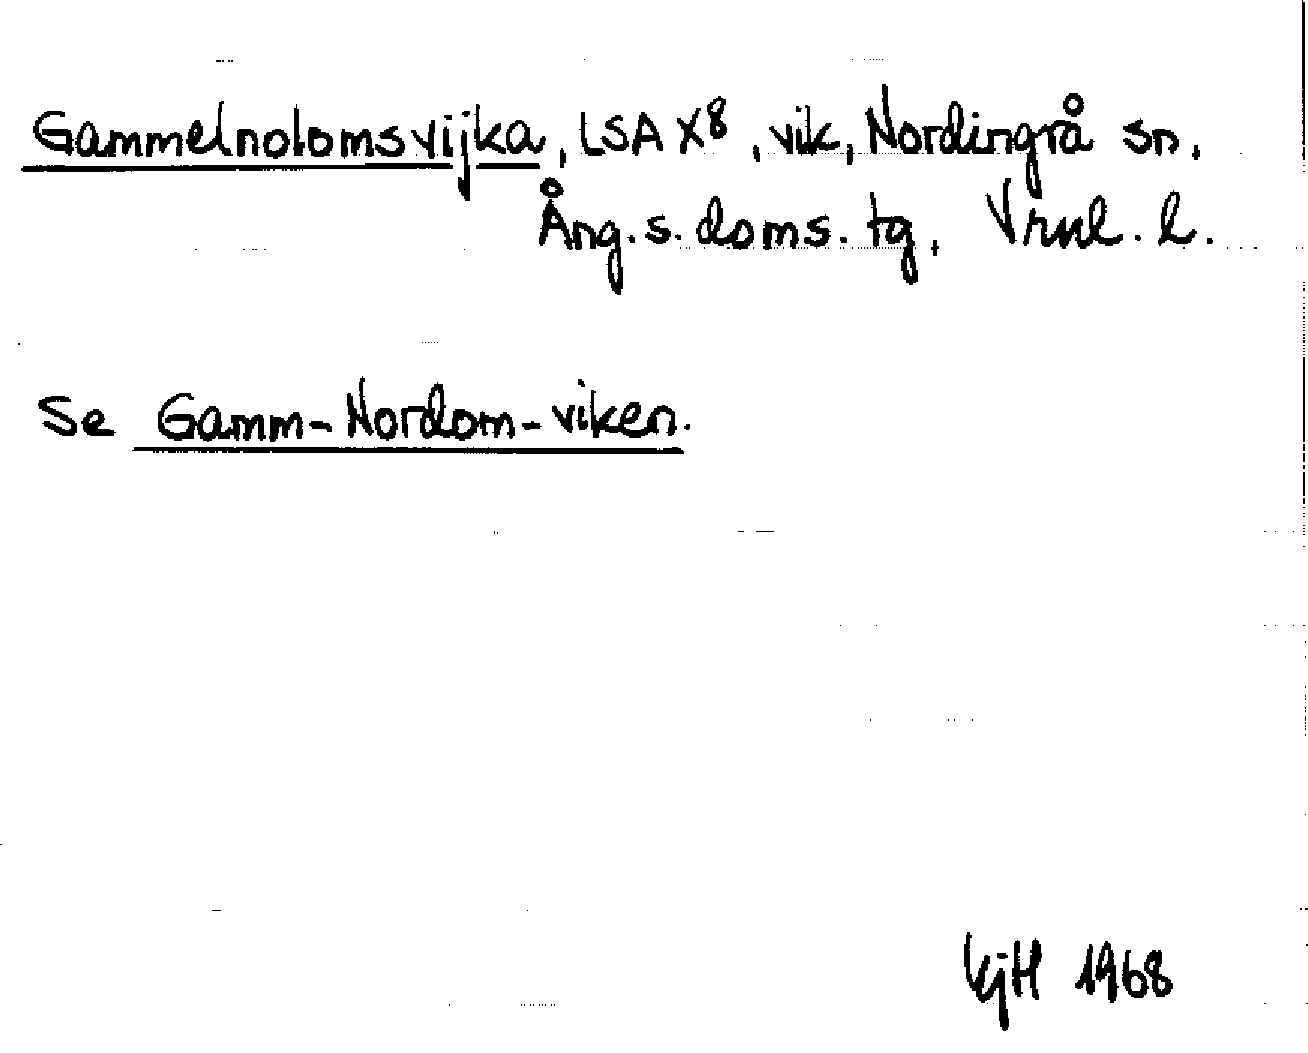 Gammelnolomsvijka, LSA X8, vik, Nordingrå sn.
Ång. s. doms. tg, Vrnl. l.
Se Gamm-Nordom-viken.
KjH 1968